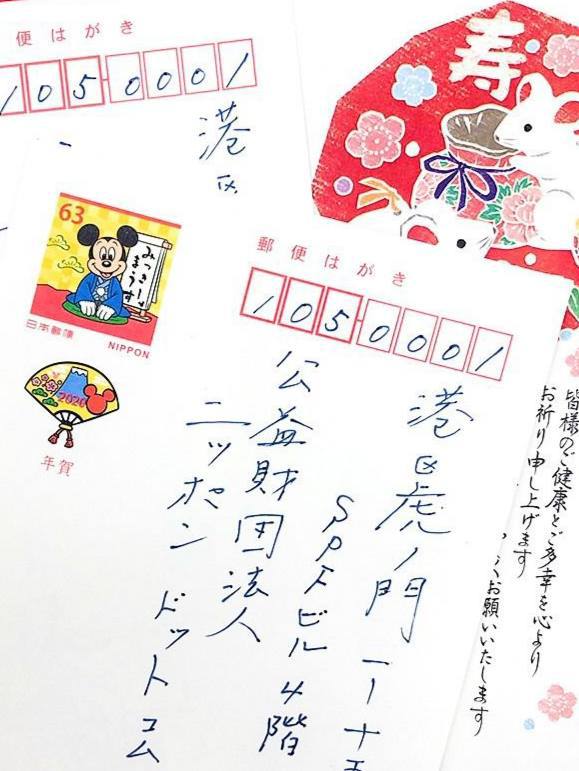 郵便はがき
1050001
港区
寿
63
みっきー
まうす
日本郵便
NIPPON
2020
年賀
郵便はがき
1050001
港区虎ノ門一ー十五
SPFビル4階
公益財団法人
ニッポン ドットコム
皆様のご健康とご多幸を心より
お祈り申し上げます
くお願いいたします